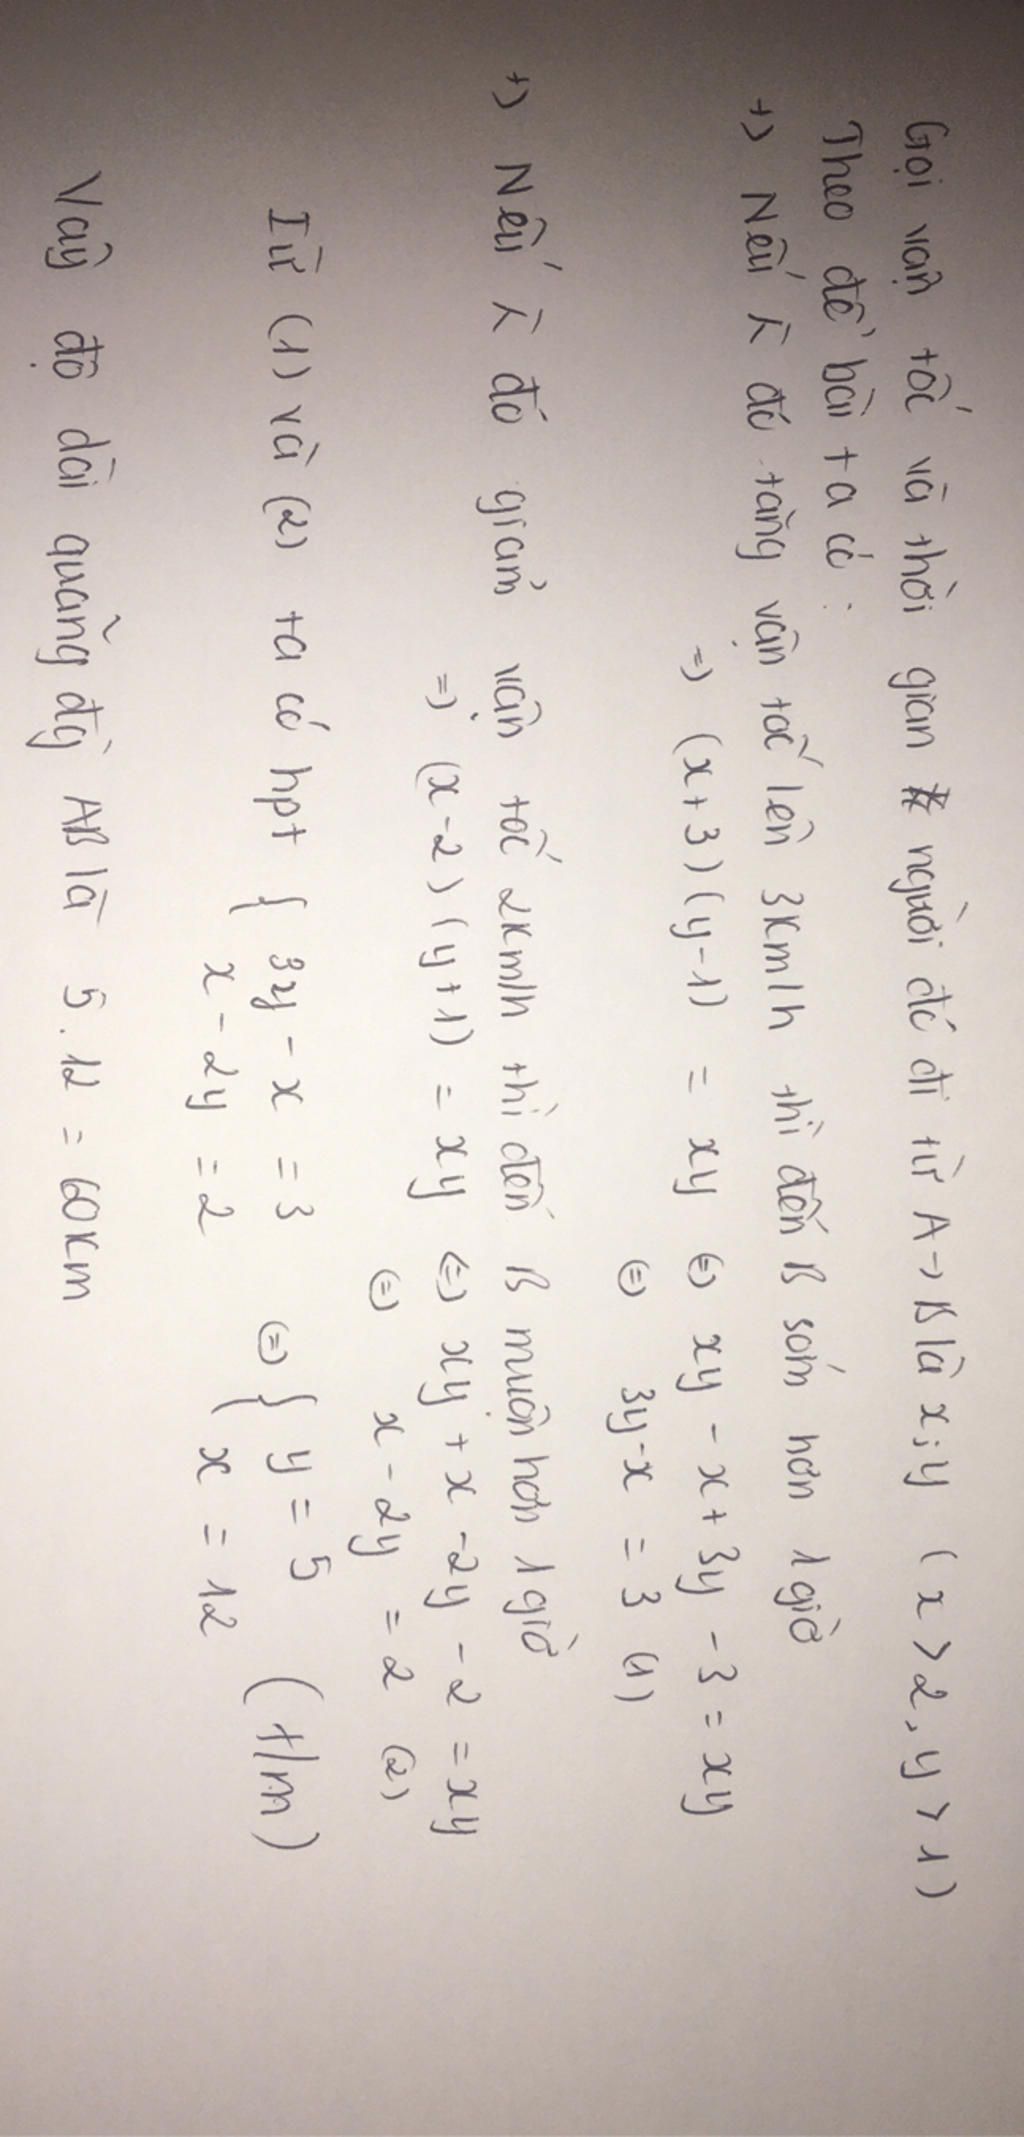 Gọi vận tốc và thời gian người đó đi từ A → B là x; y ( x > 2, y > 1 )
Theo đề bài ta có :
+) Nếu người đó tăng vận tốc lên 3km/h thì đến B sớm hơn 1 giờ
=> (x+3)(y-1) = xy <=> xy - x + 3y - 3 = xy
<=> 3y - x = 3 (1)
+) Nếu người đó giảm vận tốc 2km/h thì đến B muộn hơn 1 giờ
=> (x-2)(y+1) = xy <=> xy + x - 2y - 2 = xy
<=> x - 2y = 2 (2)
Từ (1) và (2) ta có hpt { 3y - x = 3 <=> { y = 5 (t/m)
x - 2y = 2 x = 12
Vậy độ dài quãng đg AB là 5.12 = 60km